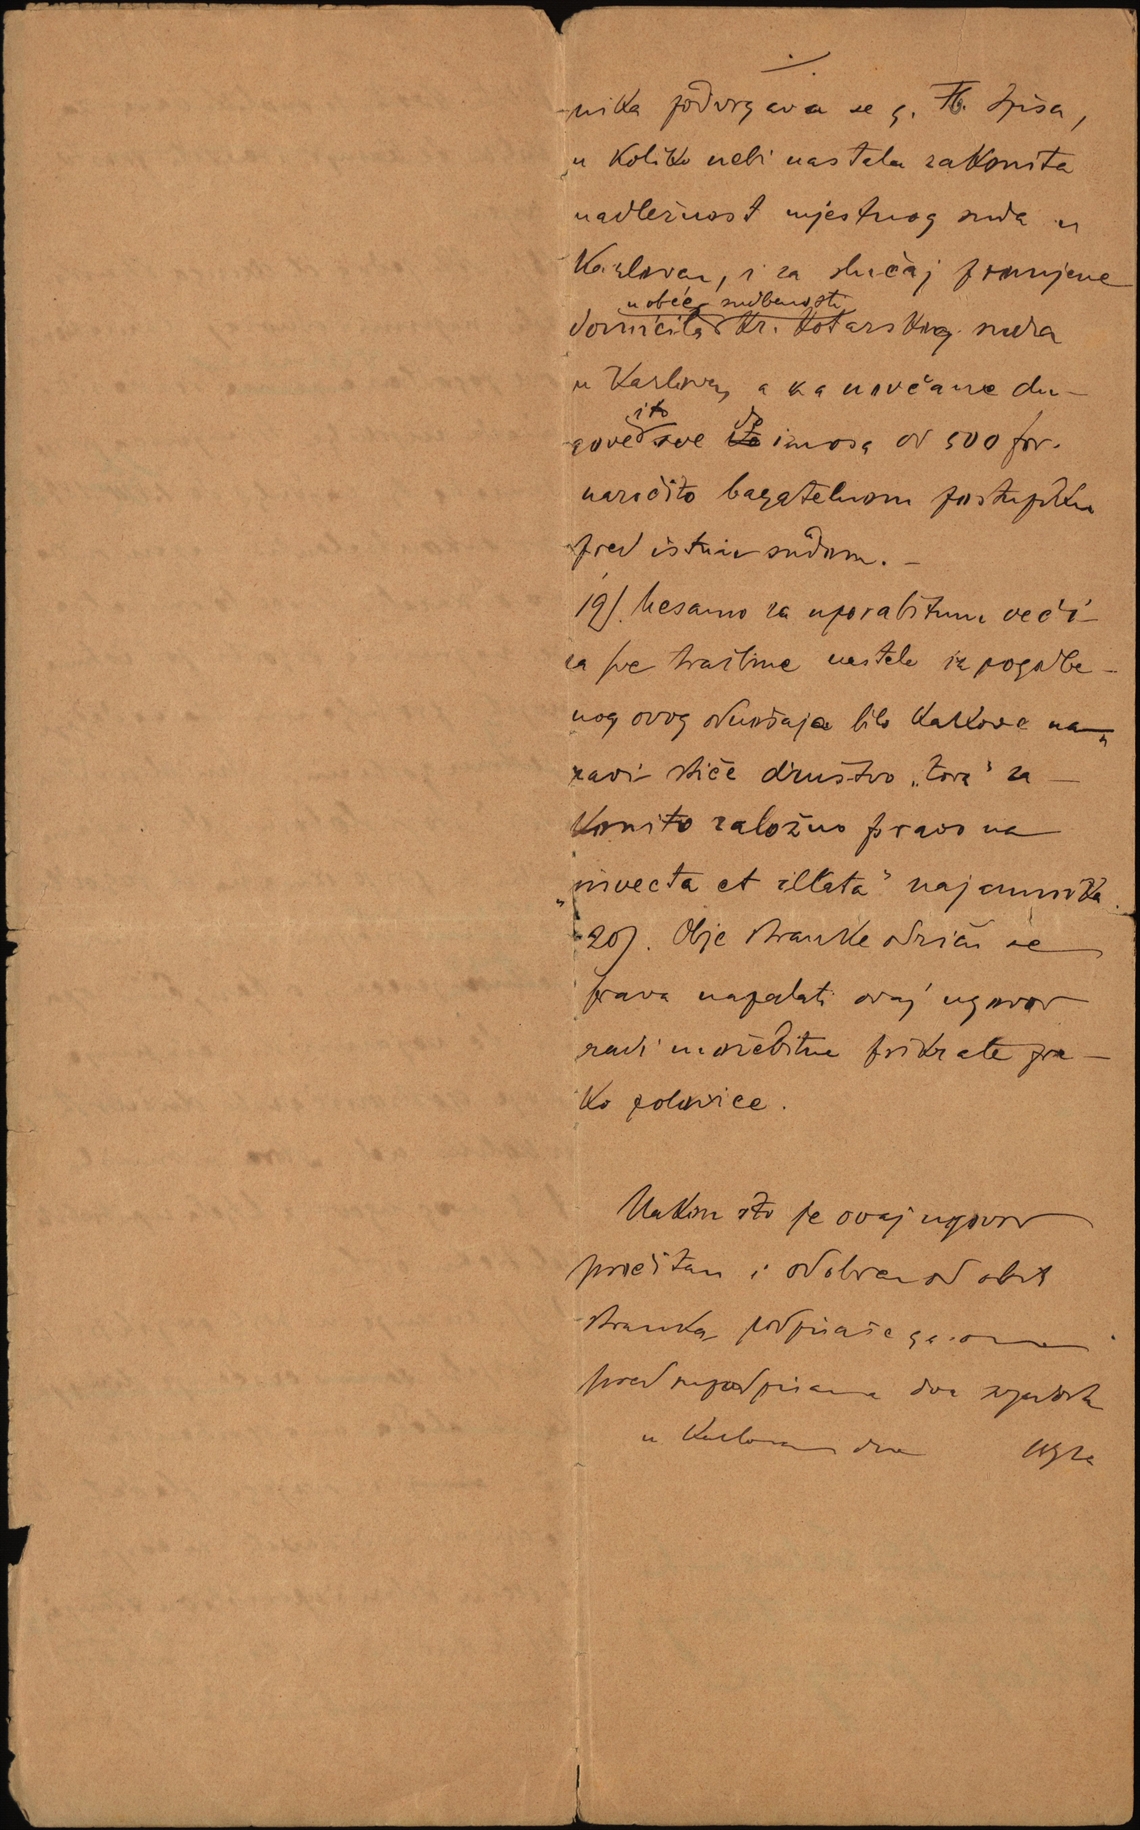 ./.
nika podvrgava se g. Fb. Spisa,
u koliko nebi nastala zakonita
nadležnost mjestnog suda u
Karlovcu, i za slučaj promjene
uobće sudbenosti
domicila kr. kotarskog suda
u Karlovcu, a za novčane du-
što do
gove sve iznosa od 500 for.
naročito bagatelnom postupku
pred istim sudom. –
19). Nesamo za uporabitum već i
za sve tražbine nastale iz pogodbe-
nog ovog odnošaja bilo kakove na-
ravi stiče družtvo „Zora" za-
konito založno pravo na
„invecta et illata" najamnika.
20). Obje stranke odriču se
prava napadati ovaj ugovor
radi možebitne prikrate pre-
ko polovice.
Nakon što je ovaj ugovor
pročitan i odobren od obih
stranka, podpisaše ga one
pred supodpisana dva svjedoka
u Karlovcu dne